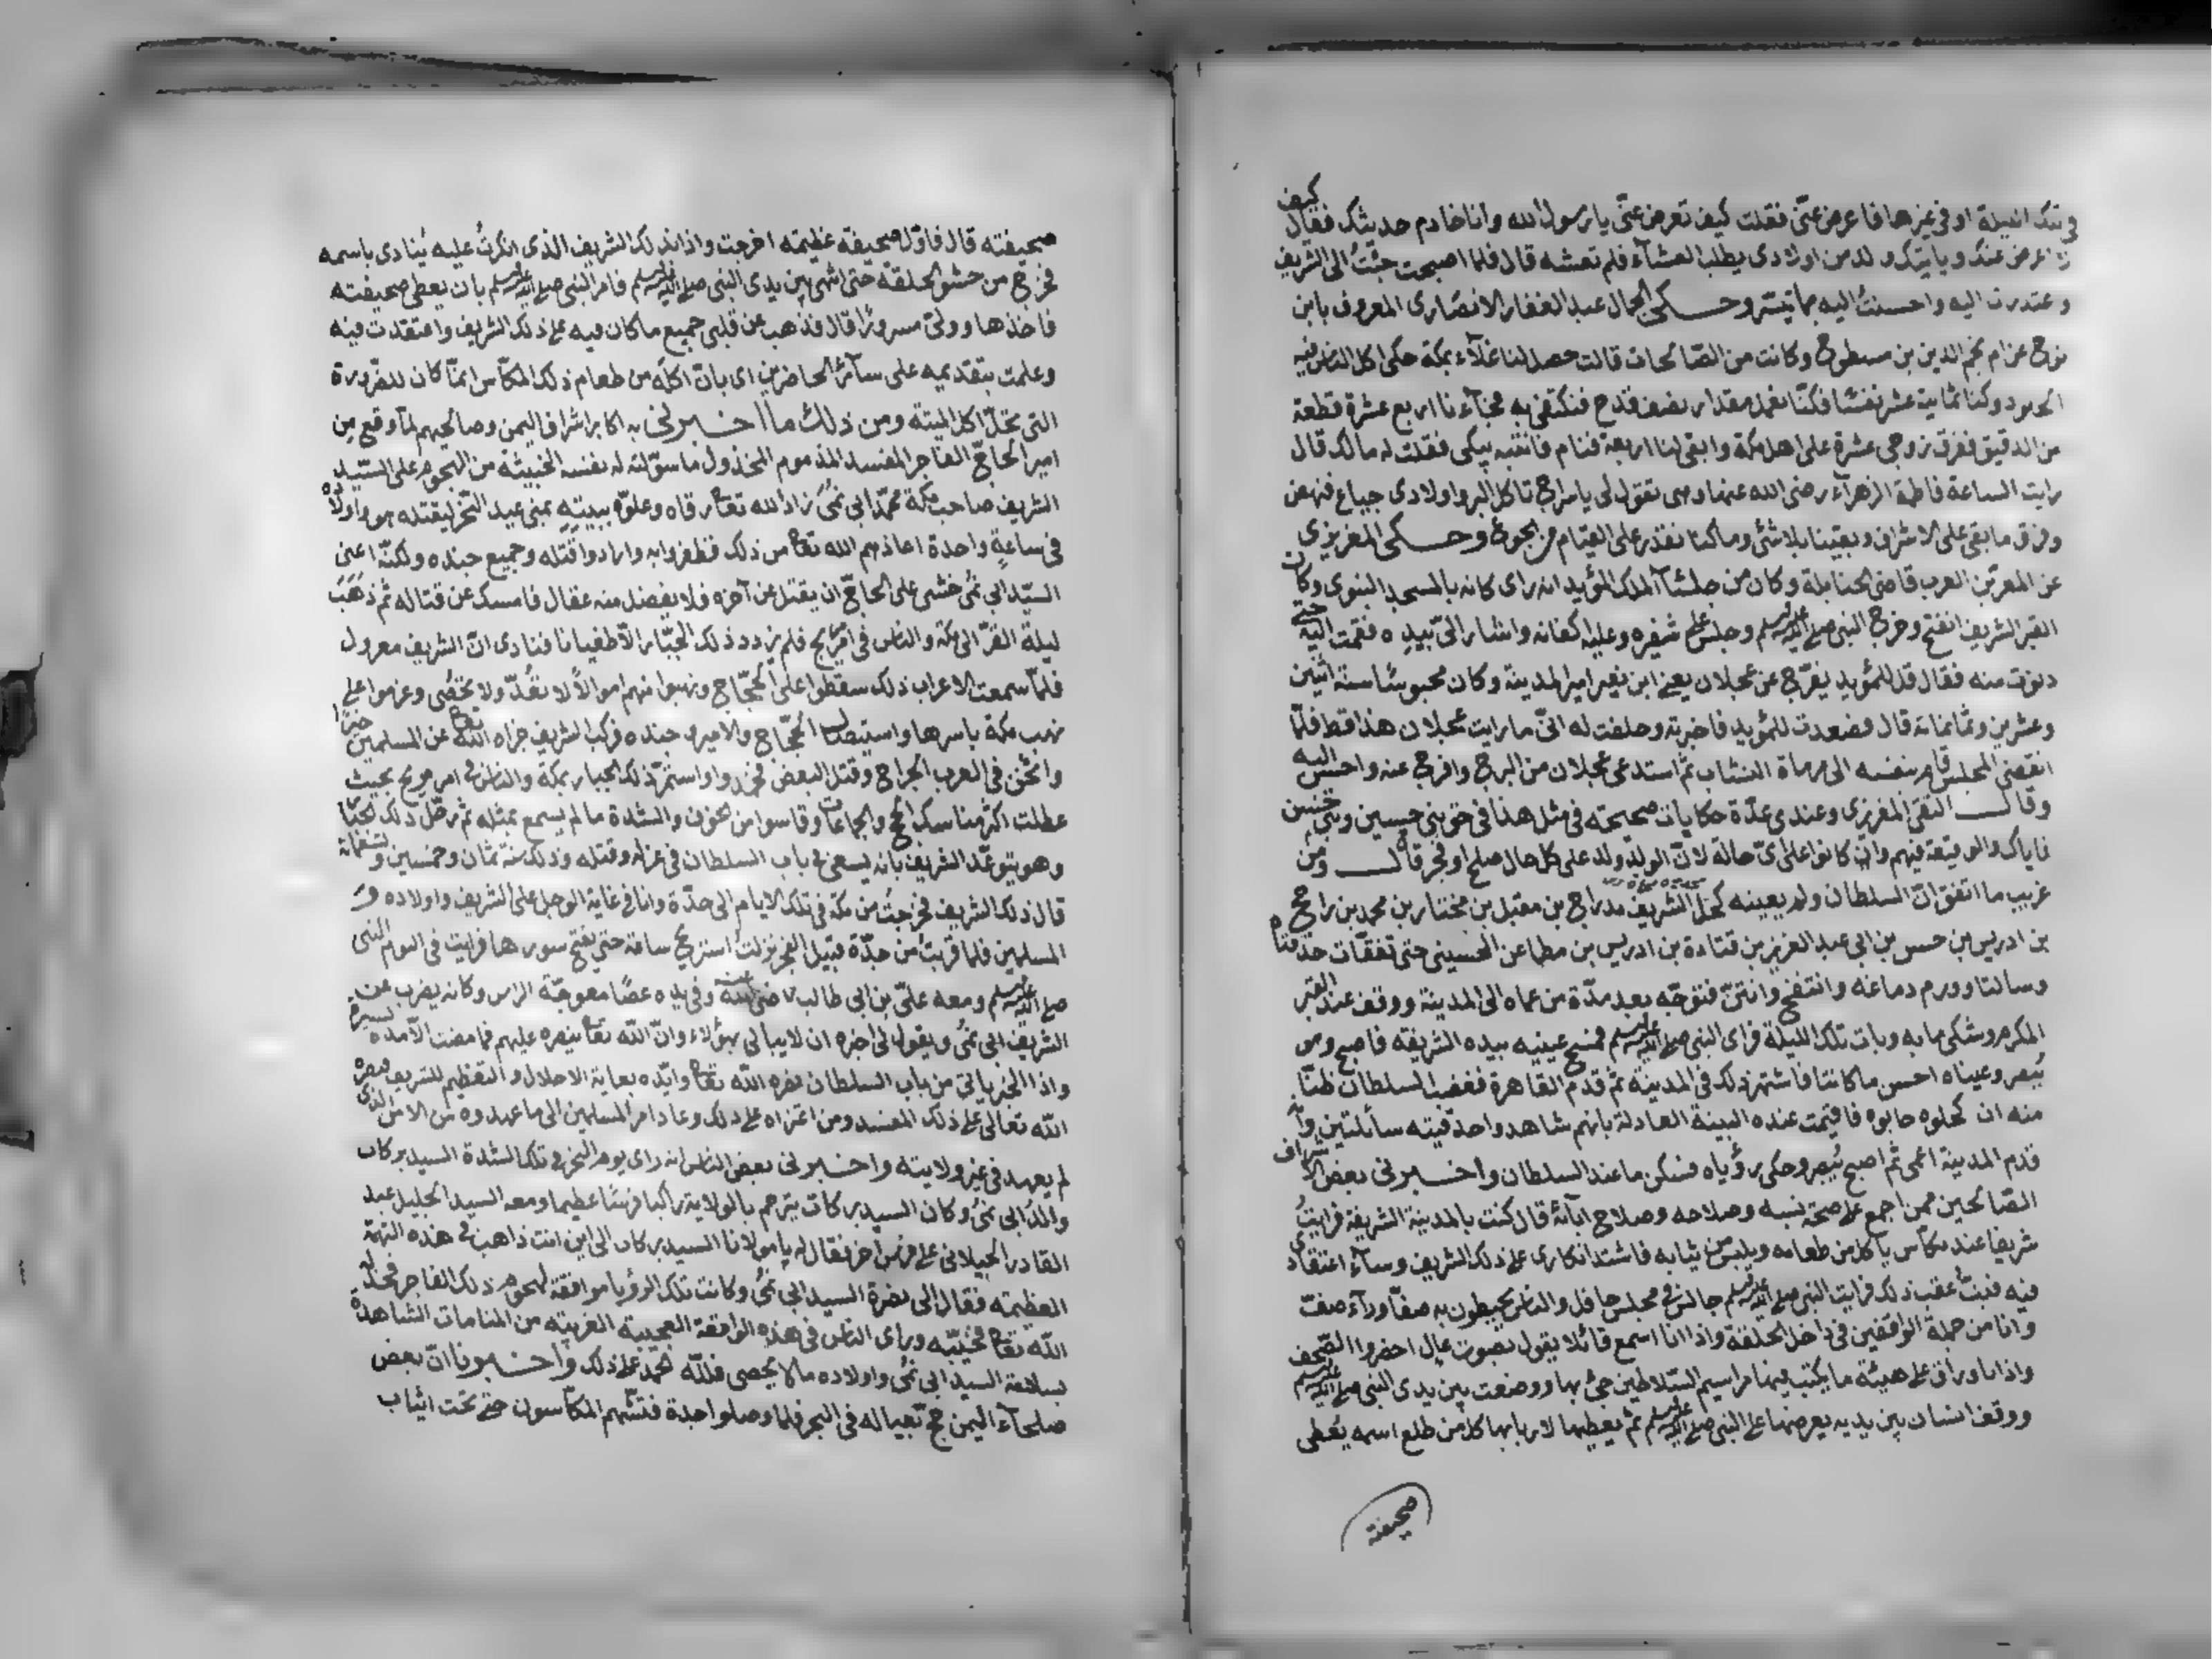 في تلك الليلة او في غيرها فاعرض عني فقلت كيف تعرض عني يا رسول الله وانا خادم حديثك فقال كيف
لا اعرض عنك وياتيك ولد من اولادي يطلب العشاء فلم تعشه قال فلما اصبحت جئت الى الشريف
وعتذرت اليه واحسنت اليه بما تيسر وحكى الجمال عبد الغفار الانصاري المعروف بابن
نوح عن ام نجم الدين بن مسطوح وكانت من الصالحات قالت حصل لنا غلاء بمكة حكى اكل الناس فيه
الجلود وكنا ثمانية عشر نفسا فكنا نعمل مقدار نصف قدح فنكتفى به فجاءنا اربع عشرة قطعة
من الدقيق ففرق زوجي عشرة على اهل مكة وابقى لنا اربعة فنام فانتبه يبكى فقلت له مالك قال
رايت الساعة فاطمة الزهراء رضي الله عنها وهى تقول لى ياسراج تاكل البر واولادى جياع فنهض
وفرق ما بقى على الاشراف وبقينا بلا شئ وما كنا نقدر على القيام من الجوع وحكى المقريزى
عن المعز بن العرب قاضى الحنابلة وكان من جلساء الملك المؤيد انه راى كانه بالمسجد النبوى وكان
القبر الشريف انفتح وخرج النبي صلى الله عليه وسلم وجلس على شفيره وعليه اكفانه واشار الى بيده فقمت اليه حتى
دنوت منه فقال قل للمؤيد يفرج عن عجلان يعنى ابن نعير امير المدينة وكان محبوسا سنة اثنين
وعشرين وثمانمائة قال فصعدت للمؤيد فاخبرته وحلفت له انى ما رايت عجلان هذا قط فلما
انقضى المجلس قام بنفسه الى مرماة النشاب ثم استدعى عجلان من البرج وافرج عنه واحسن اليه
وقال التقى المقريزى وعندى عدة حكايات صحيحة فى مثل هذا فى حق بنى حسين وبنى حسن
فاياك والوقيعة فيهم وان كانوا على اى حالة لان الولد ولد على كل حال صلح او فجر قال ومن
غريب ما اتفق ان السلطان ولم يعينه كحل الشريف مدراج بن مقبل بن مختار بن محمد بن راجح
بن ادريس بن حسن بن ابى عبد العزيز بن قتادة بن ادريس بن مطاعن الحسينى حتى تفقات حدقتاه
وسالتا وورم دماغه وانتفخ وانتن فتوجه بعد مدة من عماه الى المدينة ووقف عند القبر
المكرم وشكى ما به وبات تلك الليلة فراى النبي صلى الله عليه وسلم فمسح عينيه بيده الشريفة فاصبح وهو
يبصر وعيناه احسن ما كانتا فاشتهر ذلك فى المدينة ثم قدم القاهرة فغضب السلطان ظنا
منه ان كحلوه حابوه فاقيمت عنده البينة العادلة بانهم شاهدوا حدقتيه سائلتين وانه
قدم المدينة اعمى ثم اصبح يبصر وحكى رؤياه فسكن ما عند السلطان واخبرنى بعض الاشراف
الصالحين ممن اجمع على صحة نسبه وصلاحه وصلاح ابائه قال كنت بالمدينة الشريفة فرايت
شريفا عند مكاس ياكل من طعامه ويلبس من ثيابه فاشتد انكارى على ذلك الشريف وساء اعتقادى
فيه فنبت عقب ذلك فرايت النبي صلى الله عليه وسلم جالس فى مجلس حافل والناس يحيطون به صفا وراء صف
وانا من جملة الواقفين فى داخل الحلقة واذا انا اسمع قائلا يقول بصوت عال احضروا الصحف
واذا باوراق على هيئة ما يكتب فيها مراسيم السلاطين جئ بها ووضعت بين يدى النبي صلى الله عليه وسلم
ووقف انسان بين يديه يعرضها على النبي صلى الله عليه وسلم ثم يعطيها لاربابها كل من طلع اسمه يعطى
صحيفته
صحيفته قال فاول صحيفة عظيمة اخرجت واذا بذلك الشريف الذى انكرت عليه ينادى باسمه
فخرج من حشو الحلقة حتى انتهى بين يدى النبي صلى الله عليه وسلم فامر النبي صلى الله عليه وسلم بان يعطى صحيفته
فاخذها وولى مسرورا قال فذهب عن قلبى جميع ما كان فيه على ذلك الشريف واعتقدت فيه
وعلمت بتقديمه على سائر الحاضرين اى بان اكله من طعام ذلك المكاس انما كان للضرورة
التى تحل اكل الميتة ومن ذلك ما اخبرنى به اكابر اشراف اليمن وصالحيهم لما وقع من
امير الحاج الفاجر المفسد المذموم المخذول ما سولته له نفسه الخبيثة من الهجوم على السيد
الشريف صاحب مكة محمد ابى نمى زاد الله تعالى رقاه وعلوه ببيته بمنى عيد النحر ليقتله هو واولاده
فى ساعة واحدة اعاذهم الله تعالى من ذلك فظفروا به وارادوا قتله وجميع جنده ولكنه اعنى
السيد ابى نمى خشى على الحاج ان يقتل عن آخره فلا يفضل منه عقال فامسك عن قتاله ثم ذهب
ليلة النفر الى مكة والناس فى امر مريج فلم يزدد ذلك الجبار الا طغيانا فنادى ان الشريف معزول
فلما سمعت الاعراب ذلك سقطوا على الحجاج ونهبوا منهم اموالا لا تعد ولا تحصى وعزموا على
نهب مكة باسرها واستيصال الحجاج والامير وجنده فركب الشريف جزاه الله تعالى عن المسلمين خيرا
واثخن فى العرب الجراح وقتل البعض فخمدوا واستمر ذلك الجبار بمكة والناس فى امر مريج بحيث
عطلت اكثر مناسك الحج والجماعات وقاسوا من الخوف والشدة ما لم يسمع بمثله ثم رحل ذلك الجبار
وهو يتوعد الشريف بانه يسعى فى باب السلطان فى عزله وقتله وذلك سنة ثمان وخمسين وتسعمائة
قال ذلك الشريف فخرجت من مكة فى تلك الايام الى جدة وانا فى غاية الوجل على الشريف واولاده و
المسلمين فلما قربت من جدة قبيل الفجر نزلت استريح ساعة حتى يفتح سورها فرايت فى النوم النبى
صلى الله عليه وسلم ومعه على بن ابى طالب رضى الله عنه وفى يده عصا معوجة الراس وكانه يضرب عن
الشريف ابى نمى ويقول لى اخبره ان لا يبالى بهؤلاء وان الله تعالى ينصره عليهم فما مضت الا مدة يسيرة
واذا الخبر ياتى من باب السلطان نصره الله تعالى وايده بغاية الاجلال والتعظيم للشريف فنصره
الله تعالى على ذلك المفسد ومن اغراه على ذلك وعاد امر المسلمين الى ما عهدوه من الامن الذى
لم يعهد فى غير ولايته واخبرنى بعض الناس انه راى يوم النحر فى تلك الشدة السيد بركات
والد ابى نمى وكان السيد بركات يترحم بالولاية راكبا فرسا عظيما ومعه السيد الجليل عبد
القادر الجيلانى على فرس آخر فقال له يا مولانا السيد بركات الى اين انت ذاهب فى هذه الهمة
العظيمة فقال الى نصرة السيد ابى نمى وكانت تلك الرؤيا موافقة لهجوم ذلك الفاجر فخذله
الله تعالى وخيبه وراى الناس فى هذه الواقعة العجيبة الغريبة من المنامات الشاهدة
بسلامة السيد ابى نمى واولاده ما لا يحصى فلله الحمد على ذلك واخبرونا ان بعض
صلحاء اليمن حج بعياله فى البحر فلما وصلوا جدة فتشهم المكاسون حتى تحت اثياب